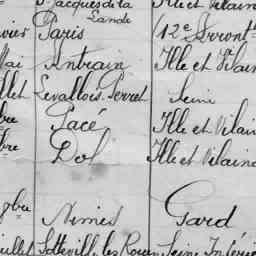 St Jacques de la Ille et Vilaine
Lande
vier Paris (12e Arront
Mai Antrain Ille et Vilain
llet Levallois-Perret Seine
bre Pacé Ille et Vilain
bre Dol Ille et Vilaine
9bre Nimes Gard
uillet Sotteville les Rouen Seine Inférie